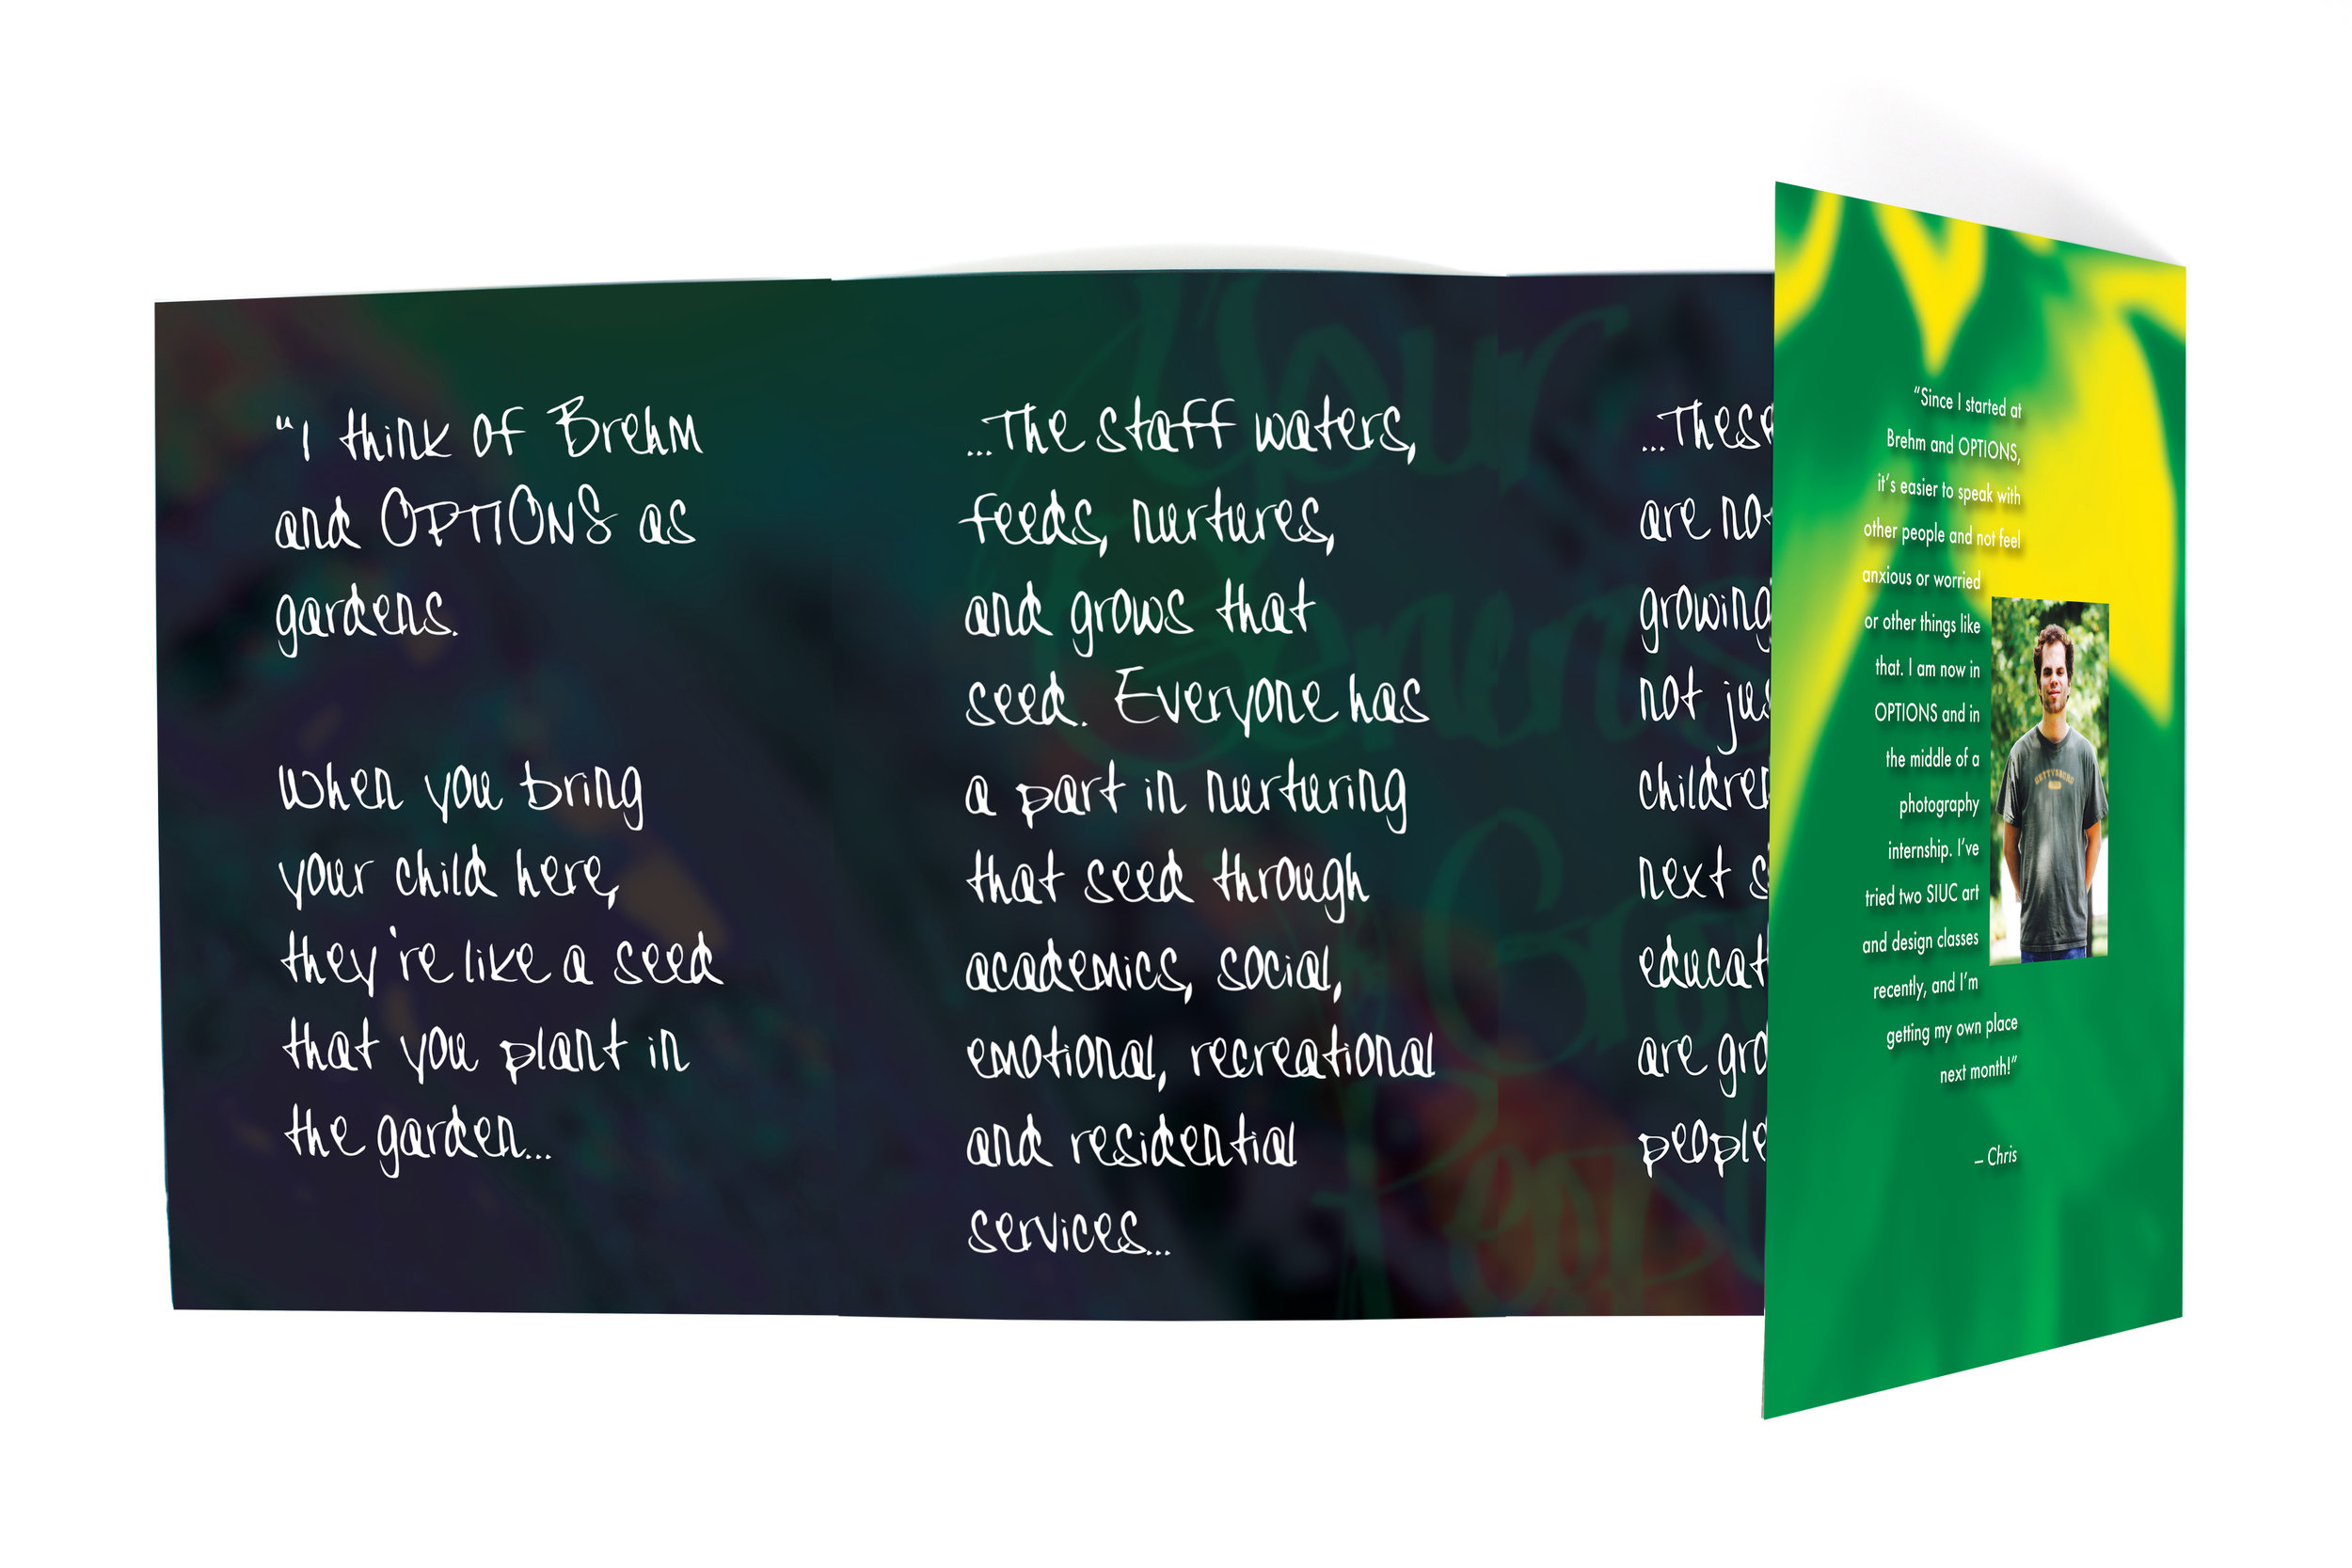 "I think of Brehm
and OPTIONS as
gardens.
When you bring
your child here,
they're like a seed
that you plant in
the garden...
...The staff waters,
feeds, nurtures,
and grows that
seed. Everyone has
a part in nurturing
that seed through
academics, social,
emotional, recreational
and residential
services...
...These
are
growing
not
next
are
people
"Since I started at
Brehm and OPTIONS,
it's easier to speak with
other people and not feel
anxious or worried
or other things like
that. I am now in
OPTIONS and in
the middle of a
photography
internship. I've
tried two SIUC art
and design classes
recently, and I'm
getting my own place
next month!"
– Chris
GETTYSBURG
Your
Genius